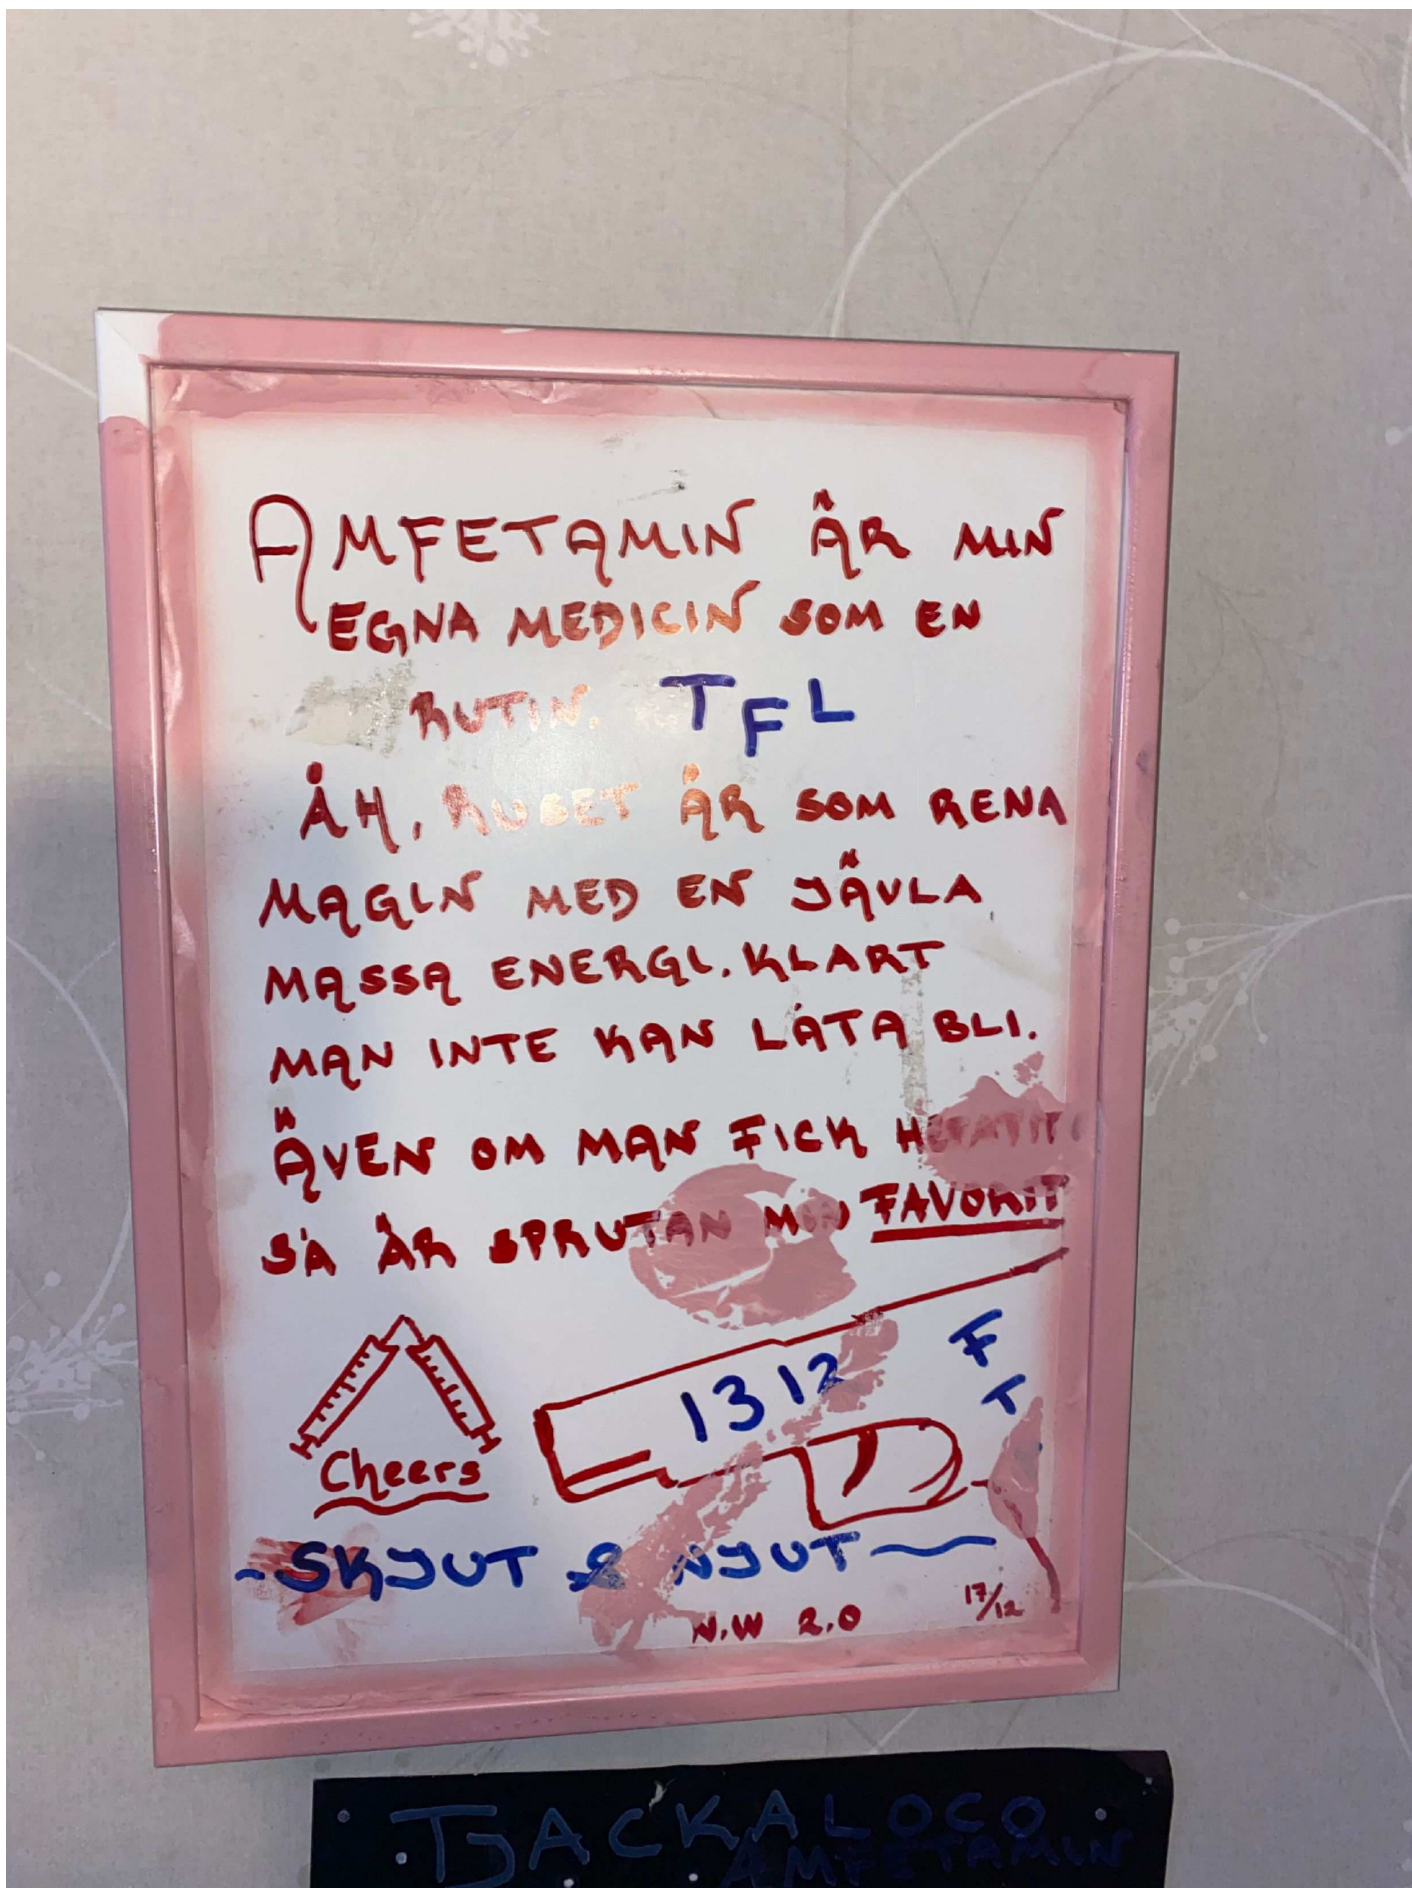 AMFETAMIN ÄR MIN
EGNA MEDICIN SOM EN
RUTIN. TFL
ÅH, RUSET ÄR SOM RENA
MAGIN MED EN JÄVLA
MASSA ENERGI. KLART
MAN INTE KAN LÅTA BLI.
ÄVEN OM MAN FICK HEPATIT
SÅ ÄR SPRUTAN MIN FAVORIT
1312
FT
Cheers
~SKJUT & NJUT~
N.W 2.0 17/12
TJACKALOCO
AMFETAMIN